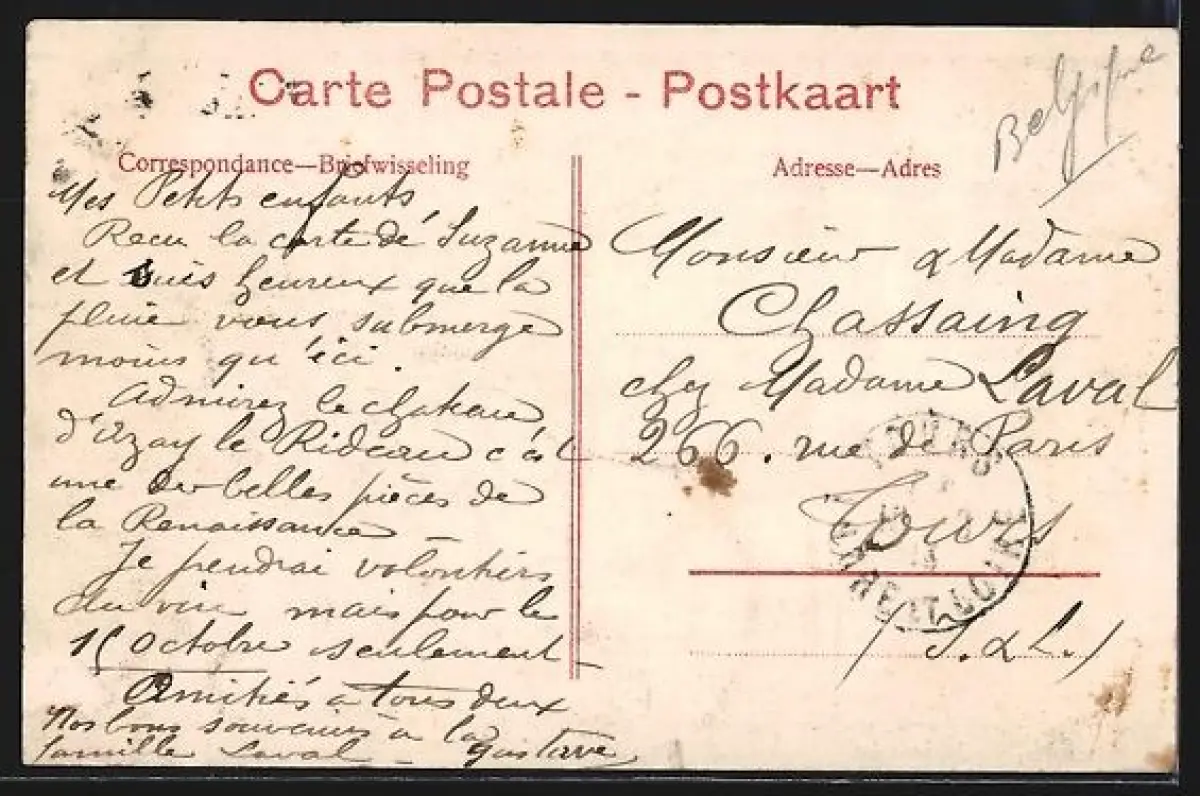 Carte Postale - Postkaart
Belgique
Correspondance—Briefwisseling
Mes Petits enfants
Recu la carte de Suzanne
et suis heureux que la
pluie vous submerge
moins qu'ici.
Admirez le chateau
d'Azay le Rideau c'est
une des belles pièces de
la Renaissance
Je prendrai volontiers
du vin mais pour le
15 Octobre seulement
Amitiés a tous deux
Nos bons souvenirs a la
famille Laval - Gustave
Adresse—Adres
Monsieur & Madame
Chassaing
chez Madame Laval
266. rue de Paris
Tours
(I. & L.)
TOURS
INDRE-ET-LOIRE